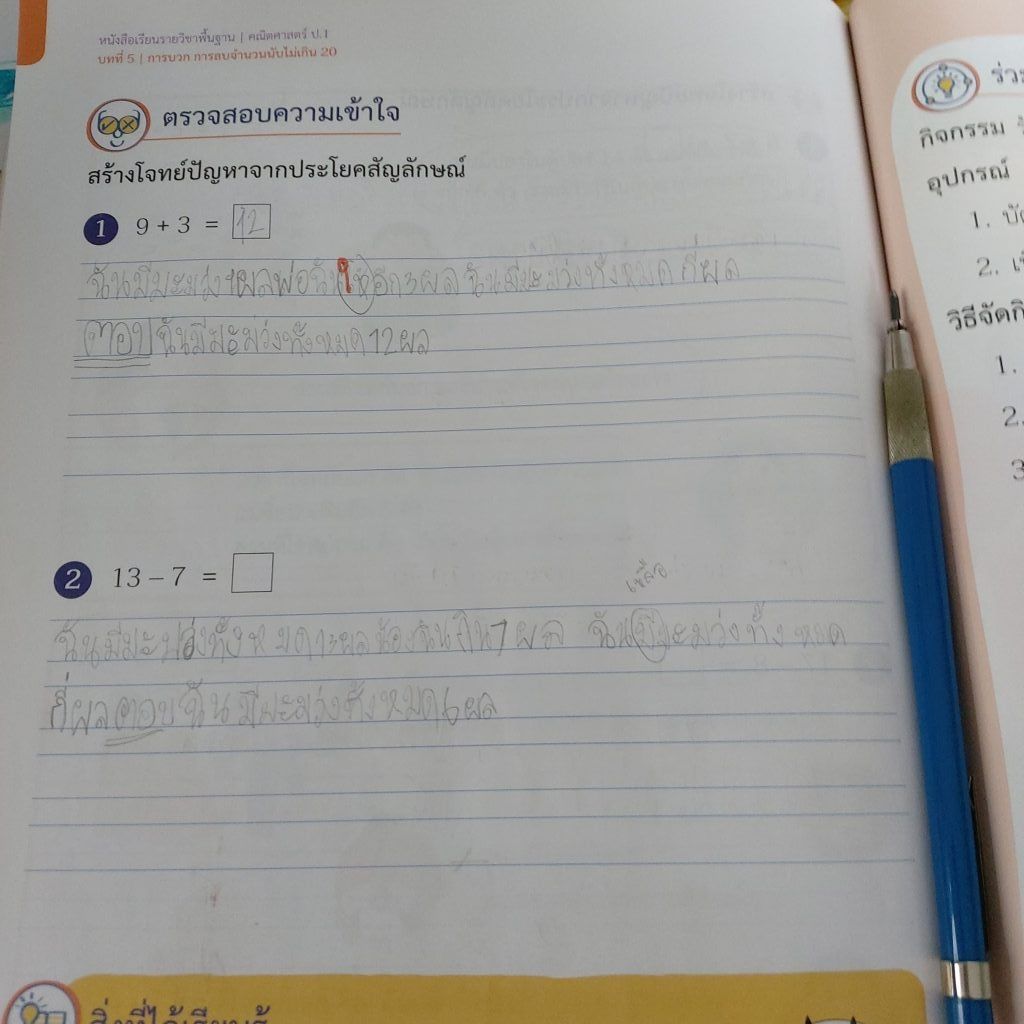 หนังสือเรียนรายวิชาพื้นฐาน | คณิตศาสตร์ ป.1
บทที่ 5 | การบวก การลบจำนวนนับไม่เกิน 20
ตรวจสอบความเข้าใจ
สร้างโจทย์ปัญหาจากประโยคสัญลักษณ์
1 9 + 3 = 12
ฉันมีมะม่วง 9 ผลพ่อฉันให้อีก 3 ผล ฉันมีมะม่วงทั้งหมด กี่ผล
ตอบ ฉันมีมะม่วงทั้งหมด 12 ผล
2 13 – 7 =
เหลือ
ฉันมีมะม่วงทั้งหมด 13 ผลน้องฉันกิน 7 ผล ฉันมีมะม่วงทั้งหมด
กี่ผล ตอบ ฉันมีมะม่วงทั้งหมด 6 ผล
สิ่งที่ได้เรียนรู้
กิจกรรม
อุปกรณ์
1.
2.
วิธีจัดกิ
1.
2.
3